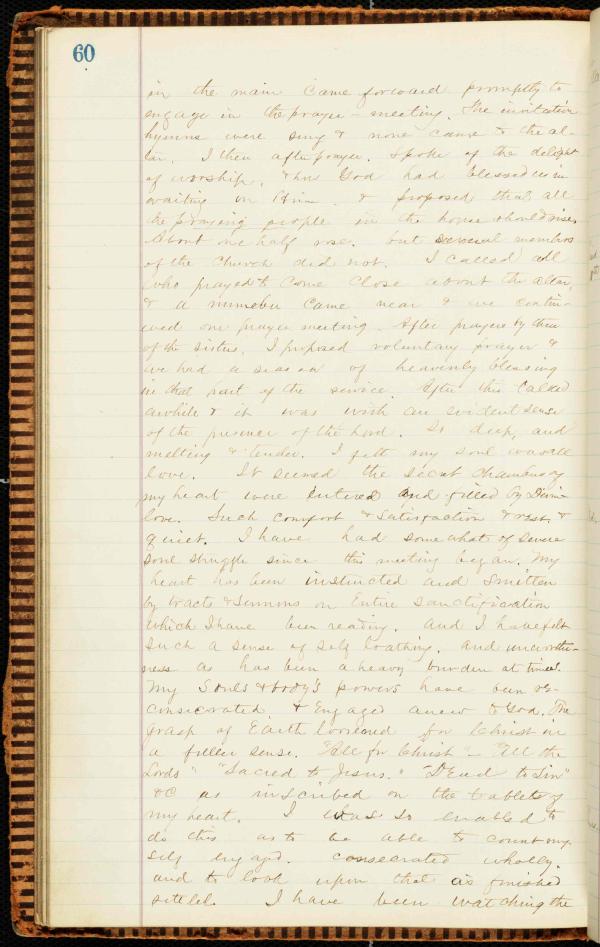 60
in the main came forward promptly to
engage in the prayer-meeting. The invitation
hymns were sung & none came to the al-
tar. I then after prayer, spoke of the delight
of worship, & how God had blessed us in
waiting on Him & proposed that all
the praying people in the house should rise.
About one half rose, but several members
of the church did not. I called all
who prayed to come close about the altar,
& a number came near & we contin-
ued our prayer meeting. After prayers by three
of the sisters, I proposed voluntary prayer &
we had a season of heavenly blessing
in that part of the service. After this talked
awhile & it was with an evident sense
of the presence of the Lord. So deep, and
melting & tender. I felt my soul was all
love. It seemed the secret chambers of
my heart were entered and filled by Divine
love. Such comfort & satisfaction & rest &
quiet. I have had somewhat of severe
soul struggle since this meeting began. My
heart has been instructed and smitten
by tracts & sermons on Entire Sanctification
which I have been reading. And I have felt
such a sense of self loathing, and unworthi-
ness as has been a heavy burden at times.
My Souls & body's powers have been re-
consecrated & Engaged anew to God. The
grasp of Earth loosened for Christ in
a fuller sense. "All for Christ" - "All the
Lords" "Sacred to Jesus." "Dead to Sin"
&C as inscribed on the tablets of
my heart. I was so enabled to
do this as to be able to count my
self engaged. consecrated wholly.
and to look upon that as finished
settled. I have been watching the